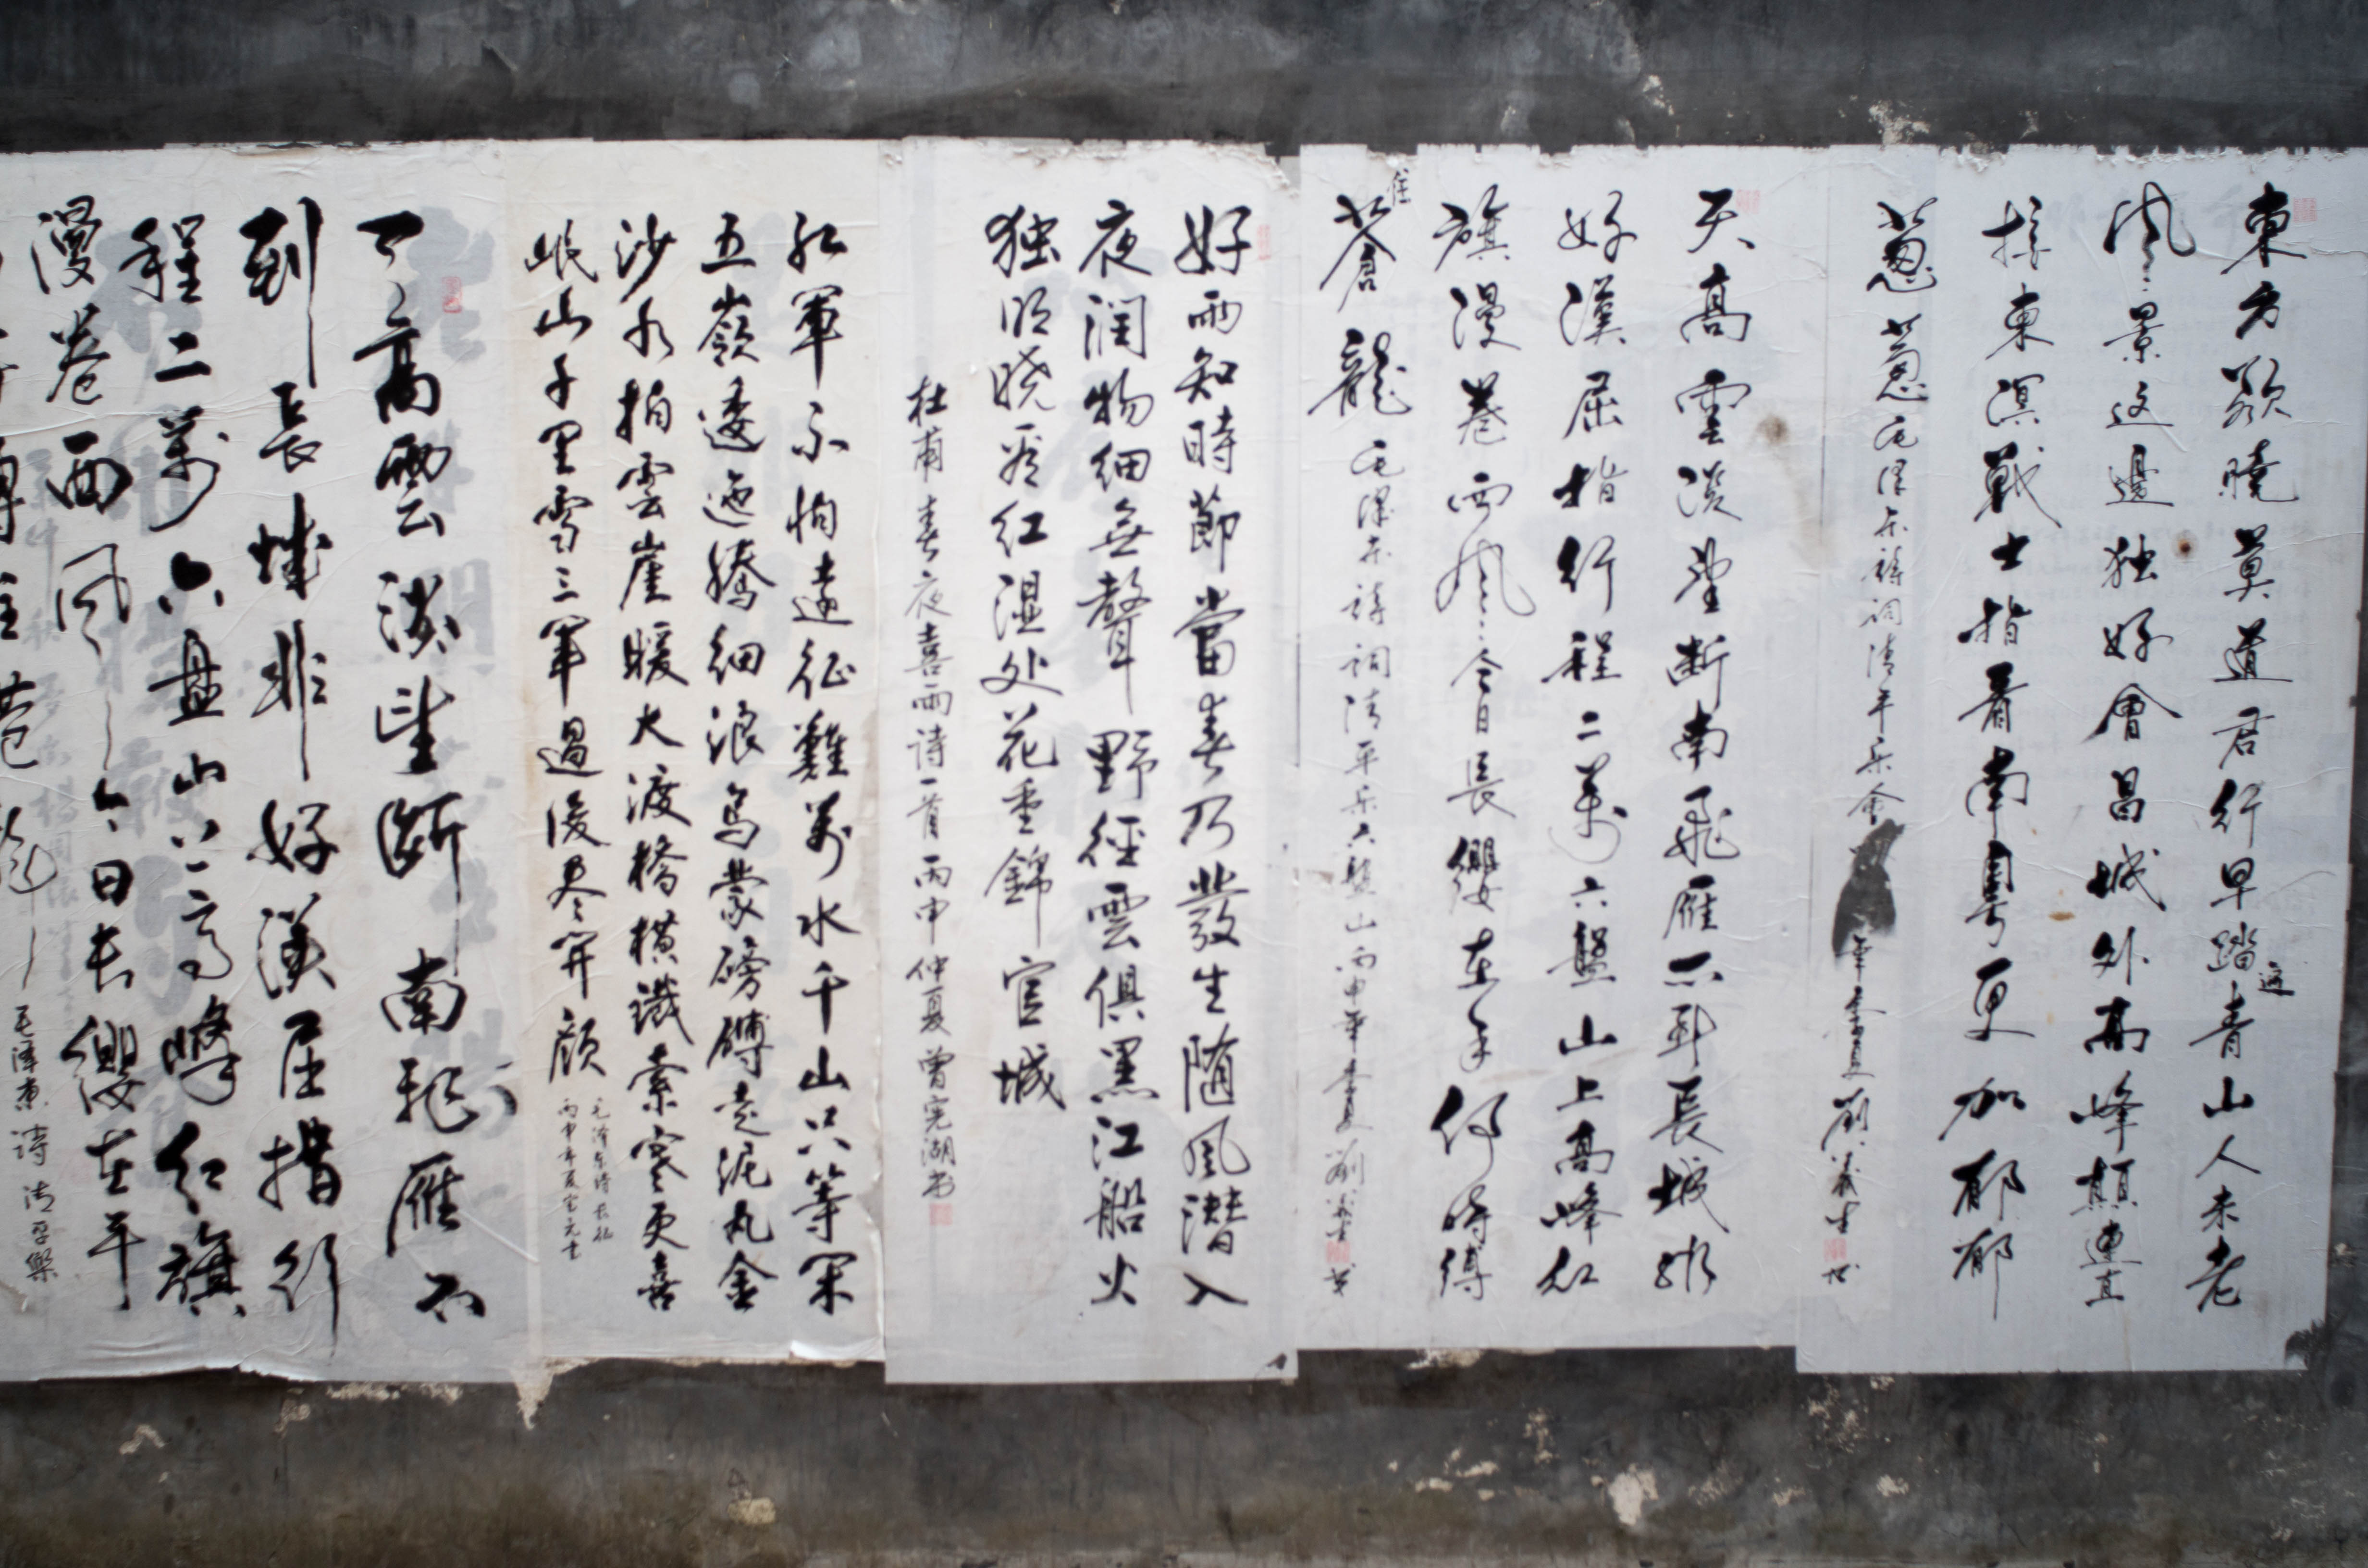 東方欲曉莫道君行早踏青山人未老
遍
風景这邊独好會昌城外高峰顛連直
接東溟戰士指看南粤更加郁郁
葱葱毛澤东詩词清平乐会
年季夏劉義生
书
天高雲淡望断南飛雁不到長城非
好漢屈指行程二萬六盤山上高峰红
旗漫卷西风今日長缨在手何時縛
住
蒼龍毛澤东詩词清平乐六盤山丙申年季夏劉義生书
好雨知時節當春乃發生随風潜入
夜润物细無聲野径雲俱黑江船火
独明晓看红湿处花重錦官城
杜甫春夜喜雨诗一首丙申仲夏曾宪湖书
红軍不怕遠征難萬水千山只等闲
五嶺逶迤腾细浪烏蒙磅礴走泥丸金
沙水拍雲崖暖大渡橋横鐵索寒更喜
岷山千里雪三軍過後尽开颜
毛泽东诗長征
天高雲淡望断南飛雁不
到長城非好漢屈指行
程二萬六盘山上高峰红旗
漫卷西风今日长缨在手
毛澤東詩清平樂